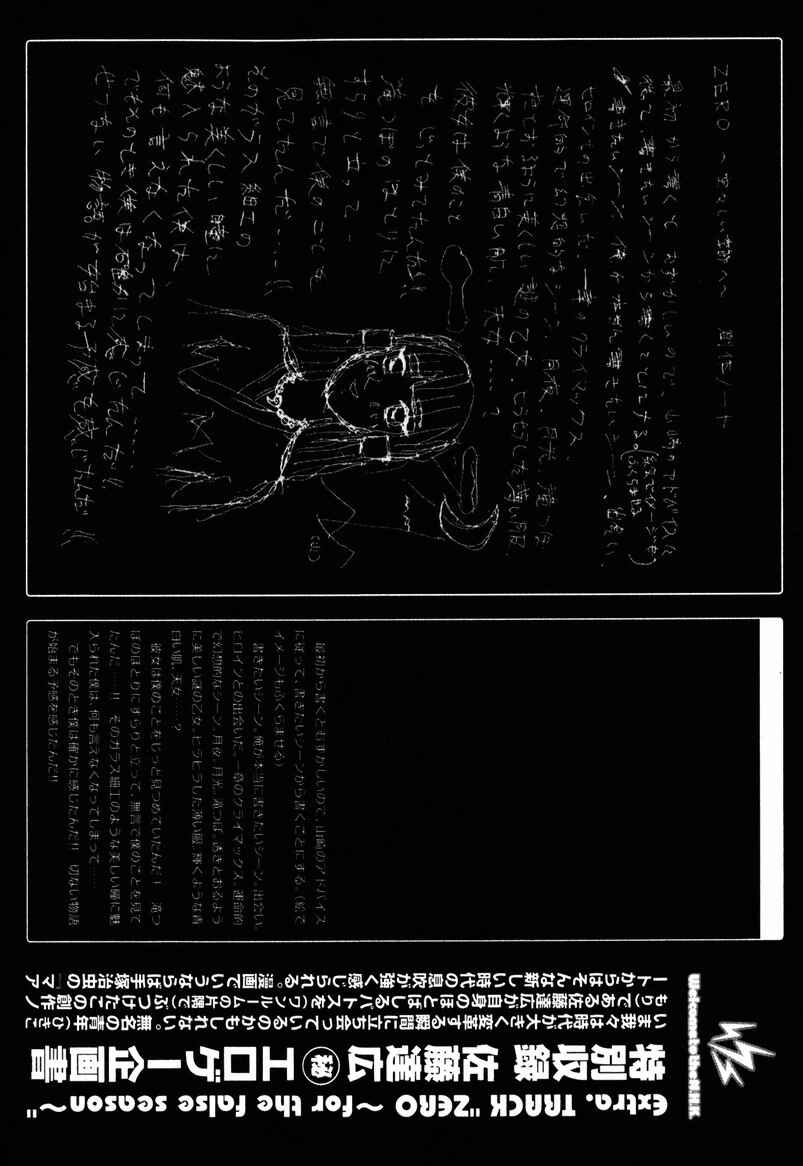 extra. TRACK "ZERO ～for the false season～"
特別収録 佐藤達広 ㊙ エロゲー企画書
いま我々は時代が大きく変革する瞬間に立ち会っているのかもしれない。無名の青年（ひきこ
もり）である佐藤達広が自身のほとばしるパトスを（ワンルームの片隅で）ぶつけたこの創作ノ
ートからはそんな新しい時代の息吹が強く感じられる。漫画でいうならば手塚治虫の『マア
Welcome to the N.H.K.
ZERO 〜 創作ノート
最初から書くと むずかしいので、山崎のアドバイスに
従って、書きたいシーンから書くことにする。(絵でイメージも
ふくらませる)
書きたいシーン、俺が本当に書きたいシーン、出会い、
ヒロインとの出会いだ、一番のクライマックス
運命的で幻想的なシーン、月夜、月光、滝つぼ
すきとおるように美しい謎の乙女、ヒラヒラした薄い服、
輝くような青白い肌、天女……?
彼女は僕のこと
をじっとみてたんだ!!
滝つぼのほとりに
すらりと立って
無言で僕のことを
見てたんだ……!!
そのガラス細工の
ような美しい瞳に
魅入られた僕は、
何も言えなくなってしまって……
でもそのとき僕は確かに感じたんだ!!
せつない物語が始まる予感を感じたんだ!!
最初から書くとむずかしいので、山崎のアドバイス
に従って、書きたいシーンから書くことにする。（絵で
イメージもふくらませる）
書きたいシーン。俺が本当に書きたいシーン。出会い。
ヒロインとの出会いだ。一番のクライマックス。運命的
で幻想的なシーン。月夜。月光。滝つぼ。透きとおるよう
に美しい謎の乙女。ヒラヒラした薄い服。輝くような青
白い肌。天女……？
彼女は僕のことをじっと見つめていたんだ！ 滝つ
ぼのほとりにすらりと立って、無言で僕のことを見て
たんだ……!! そのガラス細工のような美しい瞳に魅
入られた僕は、何も言えなくなってしまって……
でもそのとき僕は確かに感じたんだ!! 切ない物語
が始まる予感を感じたんだ!!